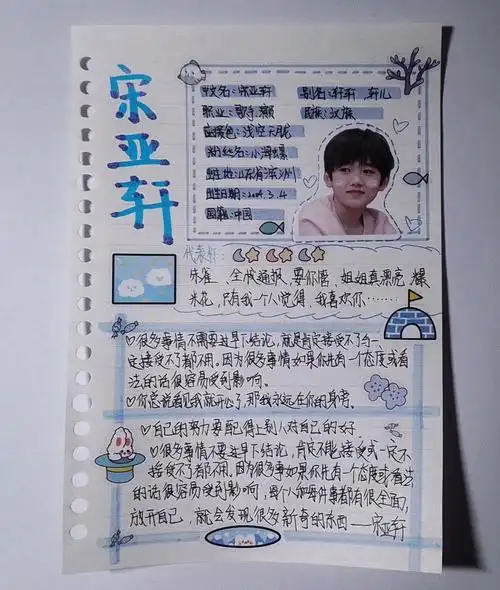 宋亚轩
中文名:宋亚轩 别名:轩轩、轩儿
职业:歌手、演员 民族:汉族
应援色:浅空天胧
粉丝名:小海螺
出生地:山东省滨州
出生日期:2004.3.4
国籍:中国
代表作:
朱雀、全城通报、要你管、姐姐真漂亮、爆
米花、只有我个人觉得、我喜欢你……
♡很多事情不需要这早下结论,就是肯定接受不了与一
定接受不了都不用。因为很多事情如果你先有一个态度或看
法的话很容易受到影响。
♡你总说看见我就开心了,那我永远在你的身旁。
♡自己的努力要配得上别人对自己的好
♡很多事情不要这早下结论,肯定不能接受或一定不
接受不了都不用。因为很多事如果你先有一个态度或看法
的话很容易受到影响,每个人和每件事都有很全面,
放开自己,就会发现很多新奇的东西——宋亚轩